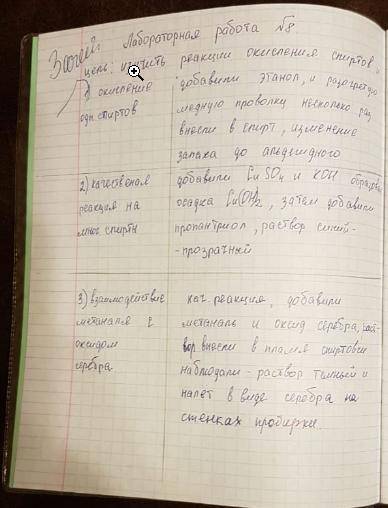 Зачёт
Лабораторная работа №8.
цель: изучить реакции окисления спиртов
1) окисление
одн. спиртов
добавили этанол, и разогретую
медную проволку несколько раз
вносили в спирт, изменение
запаха до альдегидного
2) качественая
реакция на
мног спирты
добавили CuSO4 и KOH образов
осадка Cu(OH)2, затем добавили
пропантриол, раствор синий-
-прозрачный
3) взаимодействие
метаналя с
оксидом
серебра
кач реакция, добавили
метаналь и оксид серебра, раст-
вор вносили в пламя спиртовки
наблюдали - раствор темный и
налёт в виде серебра на
стенках пробирки.